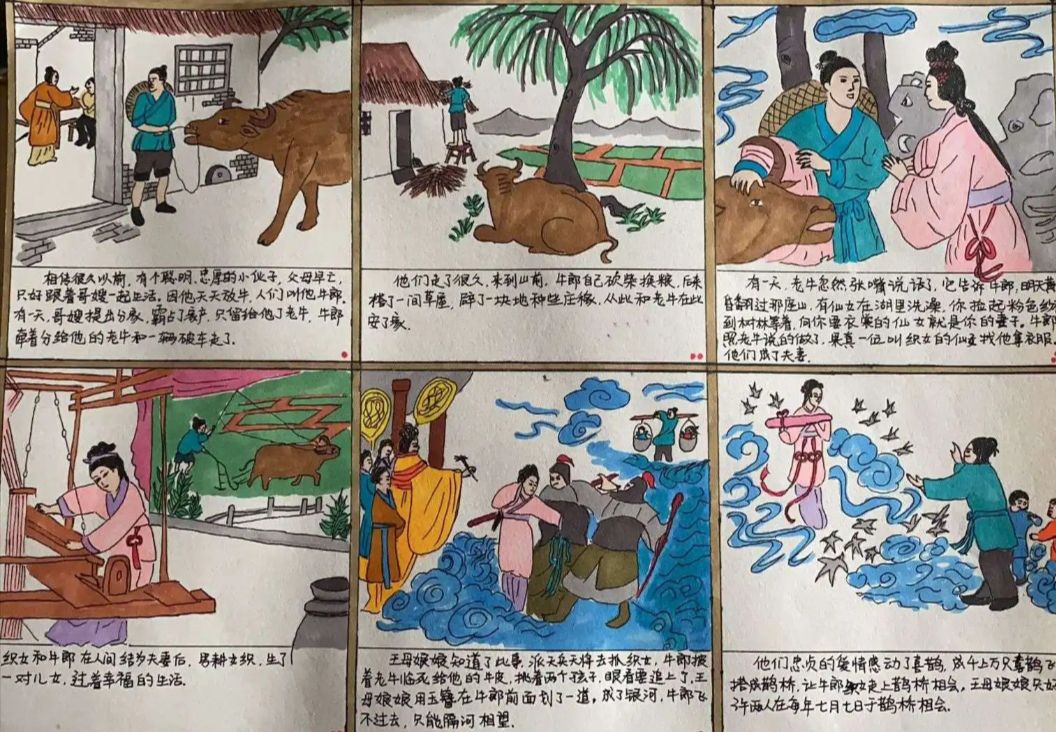 相传很久以前,有个聪明.忠厚的小伙子,父母早亡,
只好跟着哥嫂一起生活。因他天天放牛,人们叫他牛郎,
有一天,哥嫂提出分家,霸占了家产,只留给他了老牛,牛郎
牵着分给他的老牛和一辆破车走了.
他们走了很久,来到山前,牛郎自己砍柴换粮,后来
搭了一间草屋,辟了一块地种些庄稼.从此和老牛在此
安了家.
有一天,老牛忽然张嘴说话了,它告诉牛郎,明天黄
昏翻过那座山,有仙女在湖里洗澡,你拉起粉色纱
到树林等着,向你要衣裳的仙女就是你的妻子。牛郎
照老牛说的做了,果真一位叫织女的仙女找他拿衣服.
他们成了夫妻.
织女和牛郎在人间结为夫妻后,男耕女织,生了
一对儿女,过着幸福的生活.
王母娘娘知道了此事,派天兵天将去抓织女,牛郎披
着老牛临死给他的牛皮,挑着两个孩子,眼看要追上了,王
母娘娘用玉簪在牛郎前面划了一道,成了银河,牛郎飞
不过去,只能隔河相望.
他们忠贞的爱情感动了喜鹊,成千上万只喜鹊飞
搭成鹊桥,让牛郎织女走上鹊桥相会,王母娘娘只好
许两人在每年七月七日于鹊桥相会.